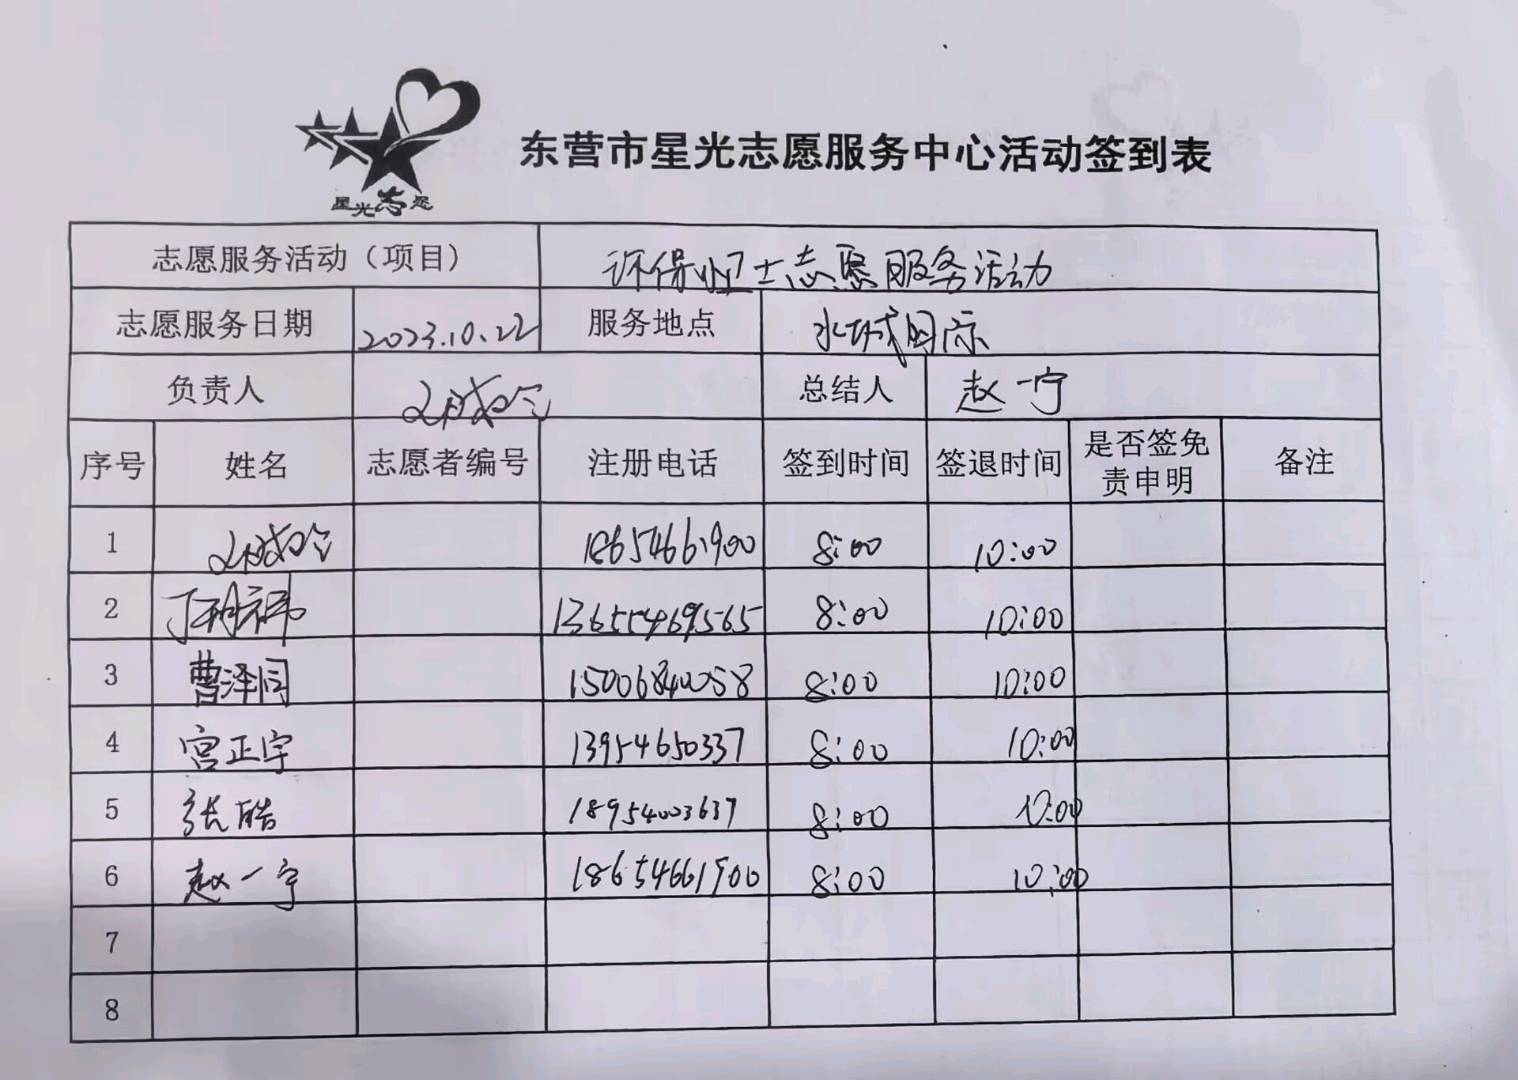 星光志愿
东营市星光志愿服务中心活动签到表
志愿服务活动（项目） 环保卫士志愿服务活动
志愿服务日期 2023.10.22 服务地点 水城国际
负责人 总结人 赵一宁
序号 姓名 志愿者编号 注册电话 签到时间 签退时间 是否签免责申明 备注
1 18654661900 8:00 10:00
2 13655469565 8:00 10:00
3 曹泽同 15006840058 8:00 10:00
4 宫正宇 13954650337 8:00 10:00
5 张皓 18954003637 8:00 10:00
6 赵一宁 18654661900 8:00 10:00
7
8